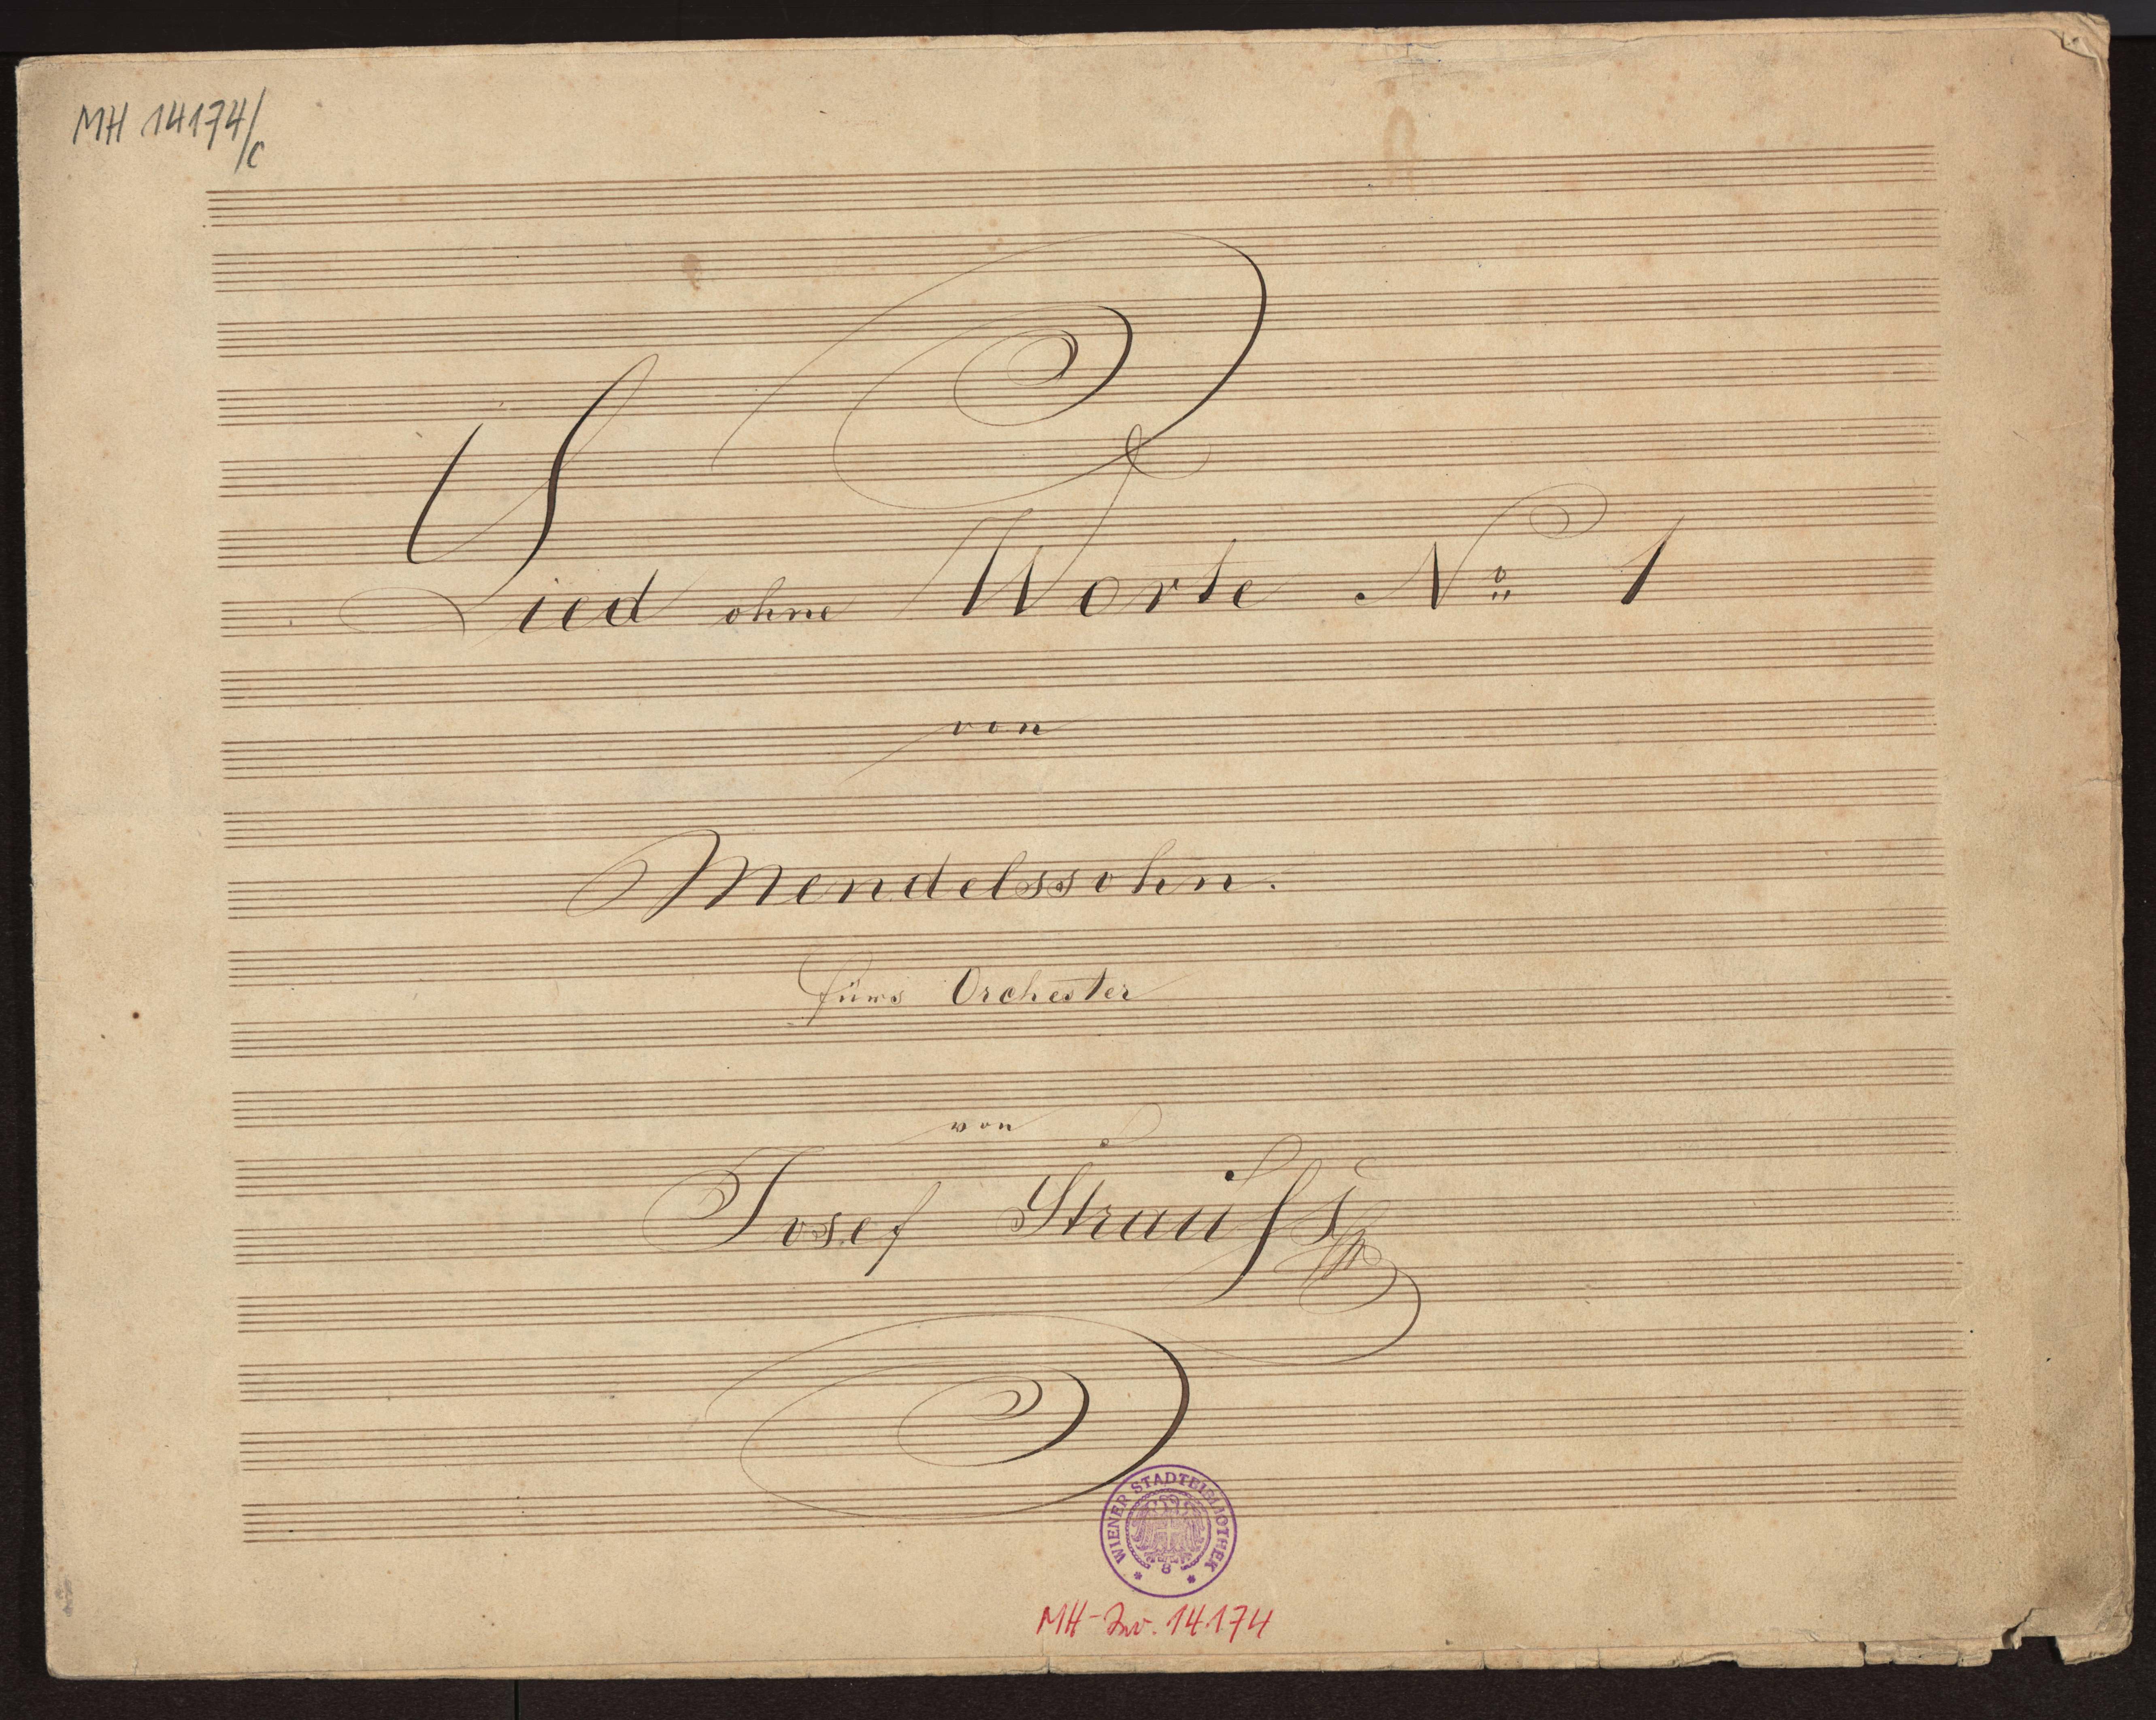 MH 14174/c
Lied ohne Worte No 1
von
Mendelssohn.
fürs Orchester
von
Josef Strauß
WIENER STADTBIBLIOTHEK
MH-Inv. 14.174